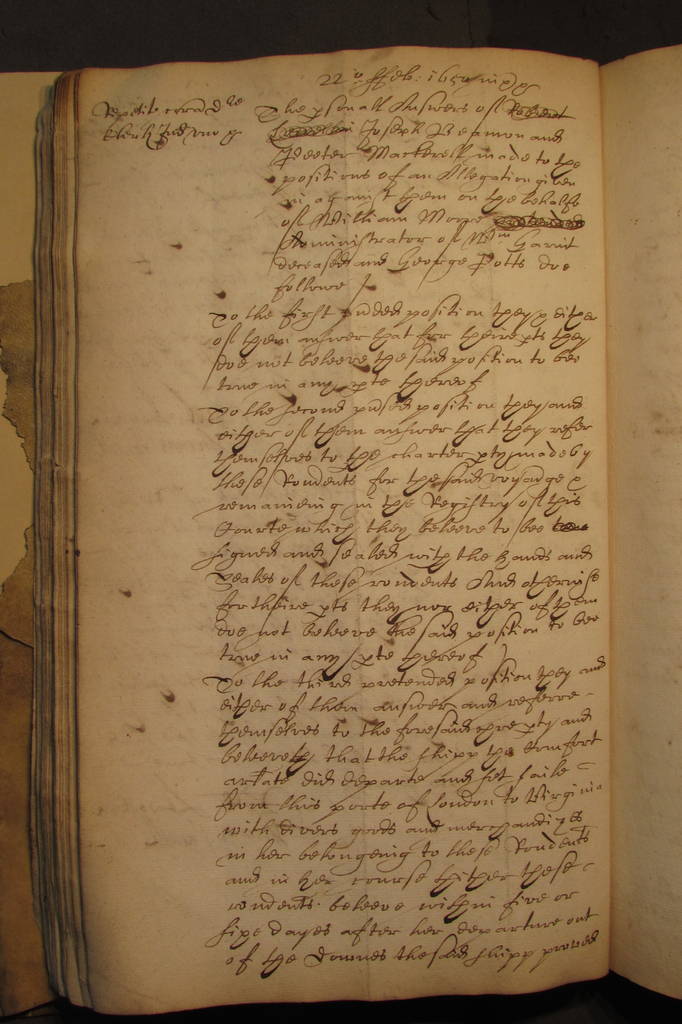 22 o ffeb: 1654
The psonall Answers of
Joseph Beamon and
Peeter Mackerell made to the
positions of an Allegation given
in against them on the behalfe
of William Moore
Administrator of Wm Garrit
deceased and George Potts doe
followe
To the first position they
of them answer that for theire pts they
doe not beleeve the said position to bee
true in any pte thereof
To the second position they and
either of them answer that they refer
themselves to the charter pty made by
these Rondents for the said voyadge
remaineing in the Registry of this
Courte which they beleeve to bee
signed and sealed with the hands and
Seales of these rondents And otherwise
for theire pts they nor either of them
doe not beleeve the said position to bee
true in any pte thereof
To the third pretended position they and
either of them answer and referre
themselves to the foresaid pty and
beleeveth that the shipp the Comfort
arlate did departe and set saile
from this porte of London to Virginia
with divers goods and merchandizes
in her belongeing to these Rondents
and in her course thither these
rondents beleeve within five or
sixe dayes after her departure out
of the Downes the said shipp proved